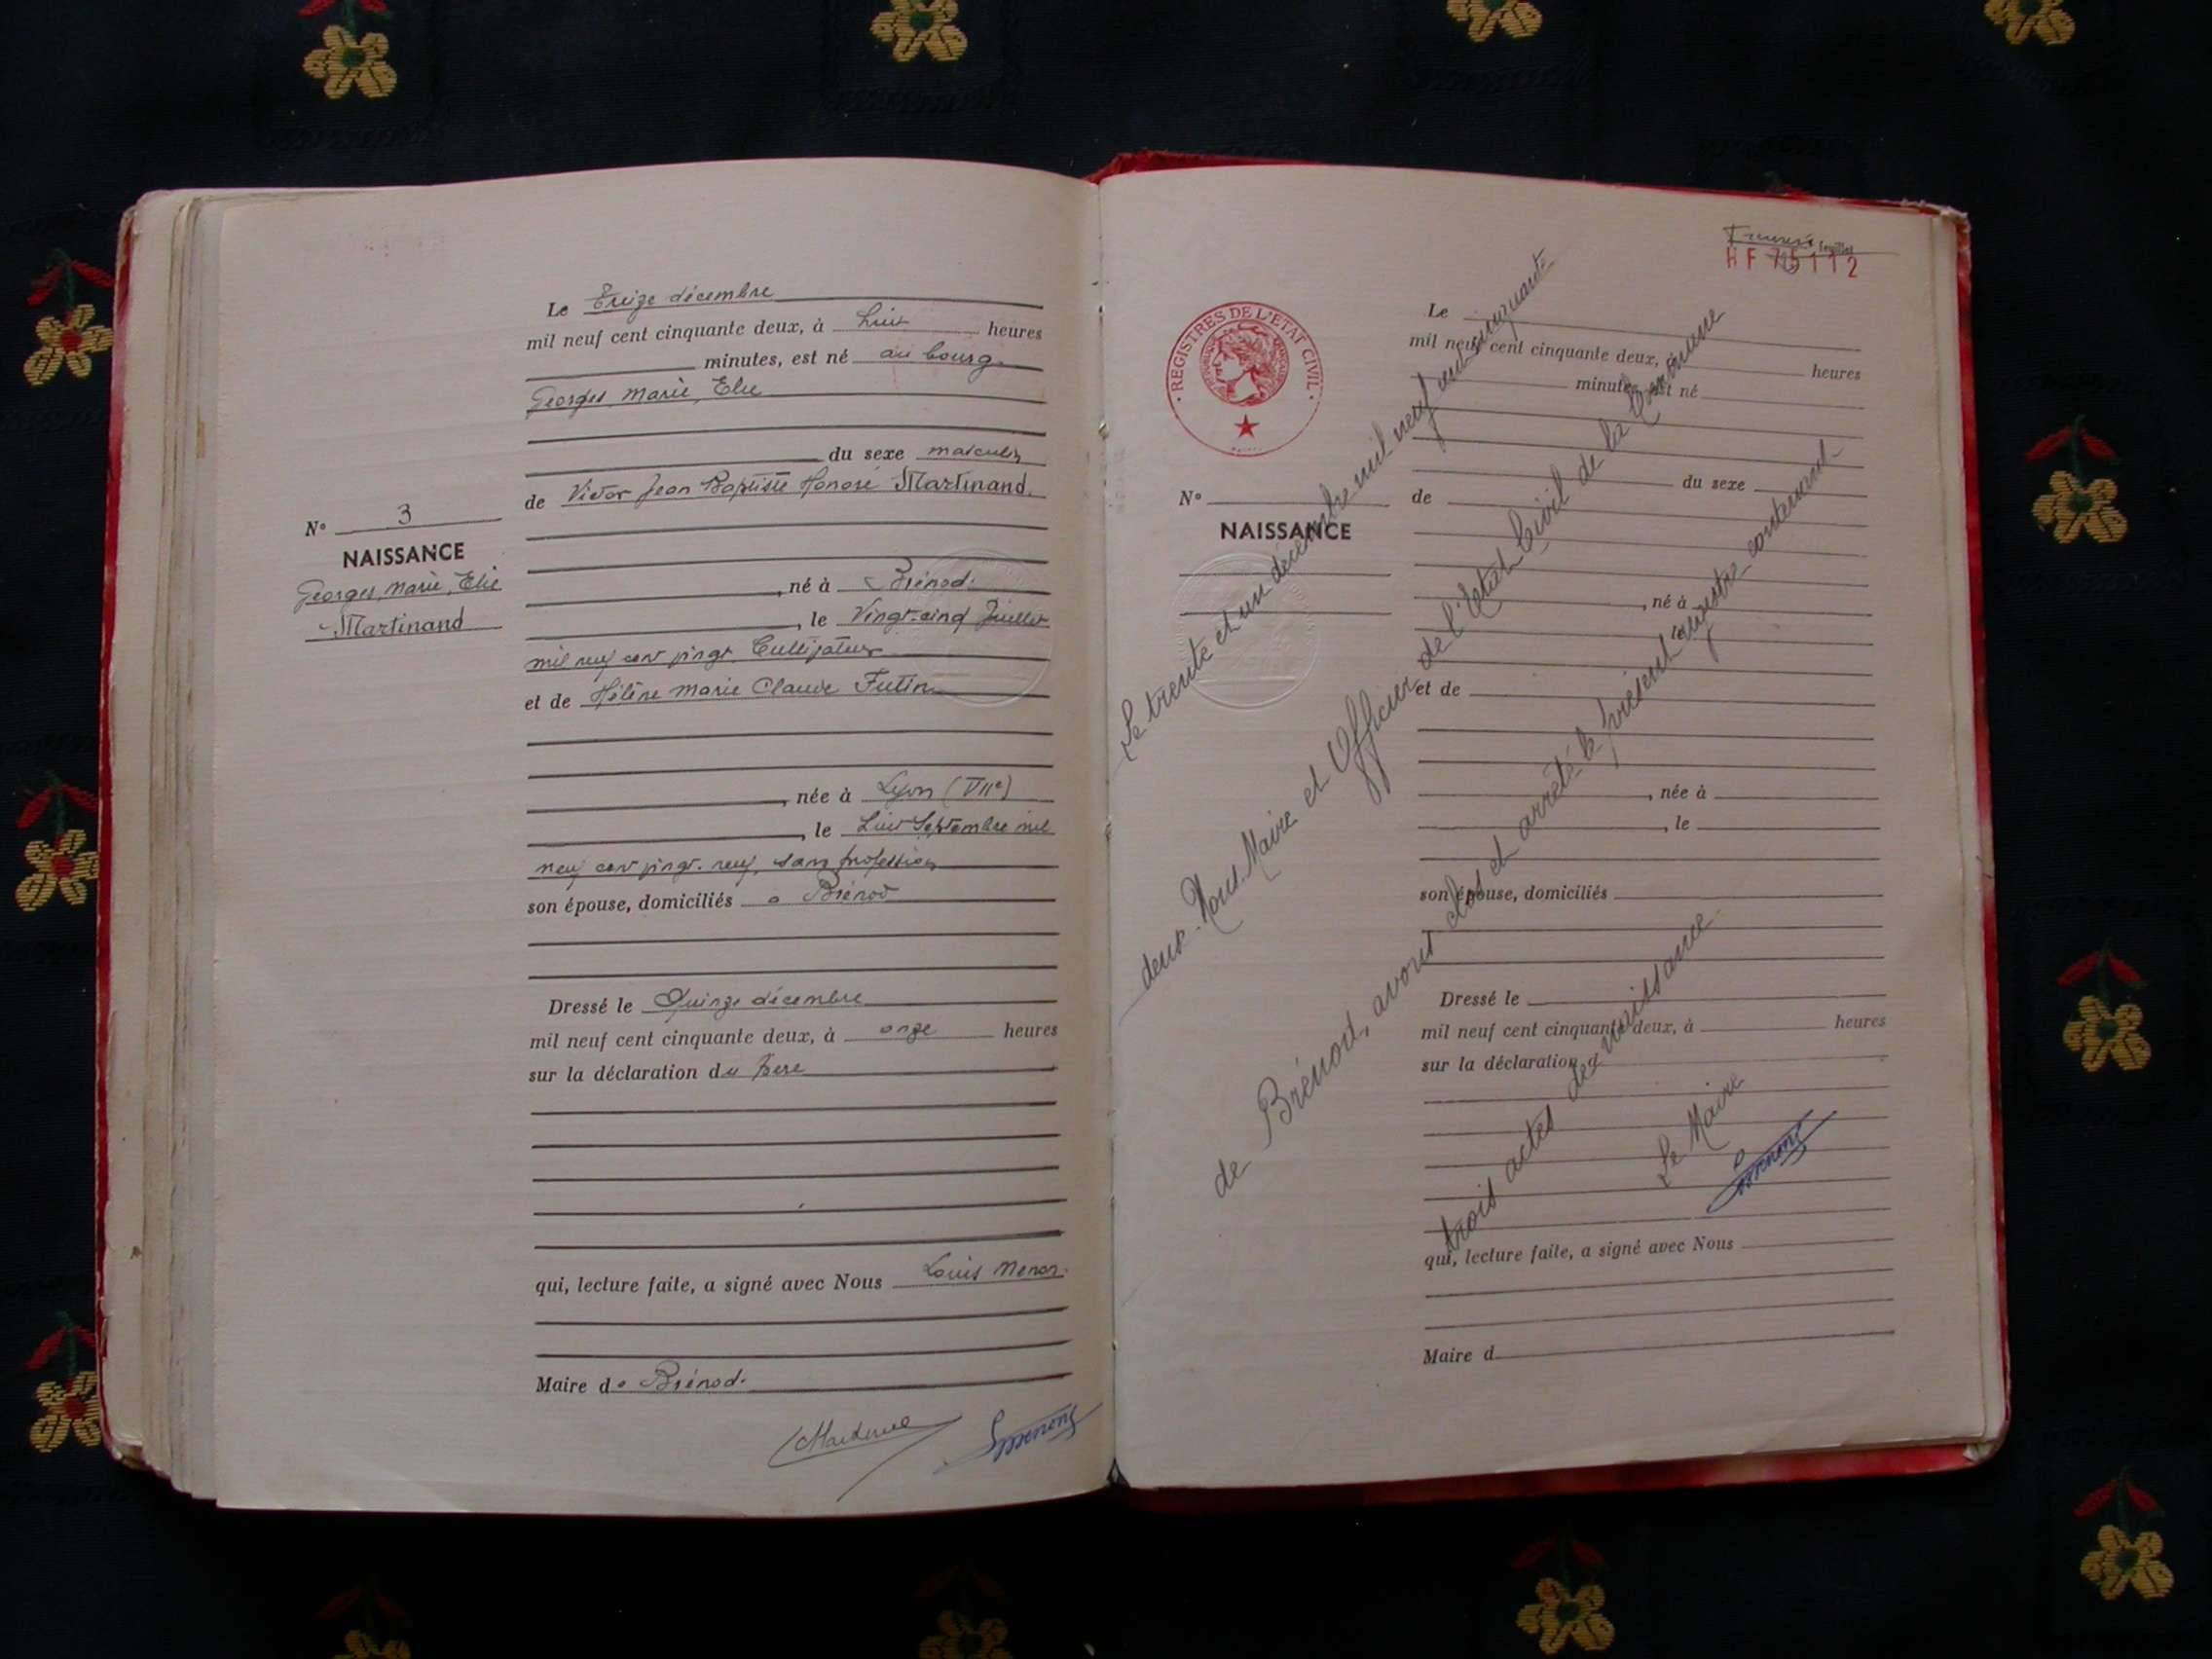 Le Treize décembre
mil neuf cent cinquante deux, à huit heures
minutes, est né au bourg.
Georges, Marie, Elie
du sexe masculin
de Victor Jean Baptiste Honoré Martinand.
N° 3
NAISSANCE
Georges, Marie, Elie
Martinand
, né à Brénod.
, le Vingt-cinq Juillet
mil neuf cent vingt Cultivateur
et de Hélène Marie Claude Futin
, née à Lyon (VIIe)
, le huit Septembre mil
neuf cent vingt-neuf, sans profession
son épouse, domiciliés à Brénod
Dressé le Quinze décembre
mil neuf cent cinquante deux, à onze heures
sur la déclaration du Père
qui, lecture faite, a signé avec Nous Louis
Maire de Brénod.
feuillet
HF 75112
REGISTRES DE L'ETAT CIVIL
Le
mil neuf cent cinquante deux, à heures
minutes, est né
du sexe
N°
NAISSANCE
de
, né à
, le
et de
, née à
, le
son épouse, domiciliés
Dressé le
mil neuf cent cinquante deux, à heures
sur la déclaration d
qui, lecture faite, a signé avec Nous
Maire d
Le trente et un décembre mil neuf cent cinquante
deux. Nous Maire et Officier de l'Etat Civil de la Commune
de Brénod, avons clos et arrêté le présent registre contenant
trois actes de naissance
Le Maire